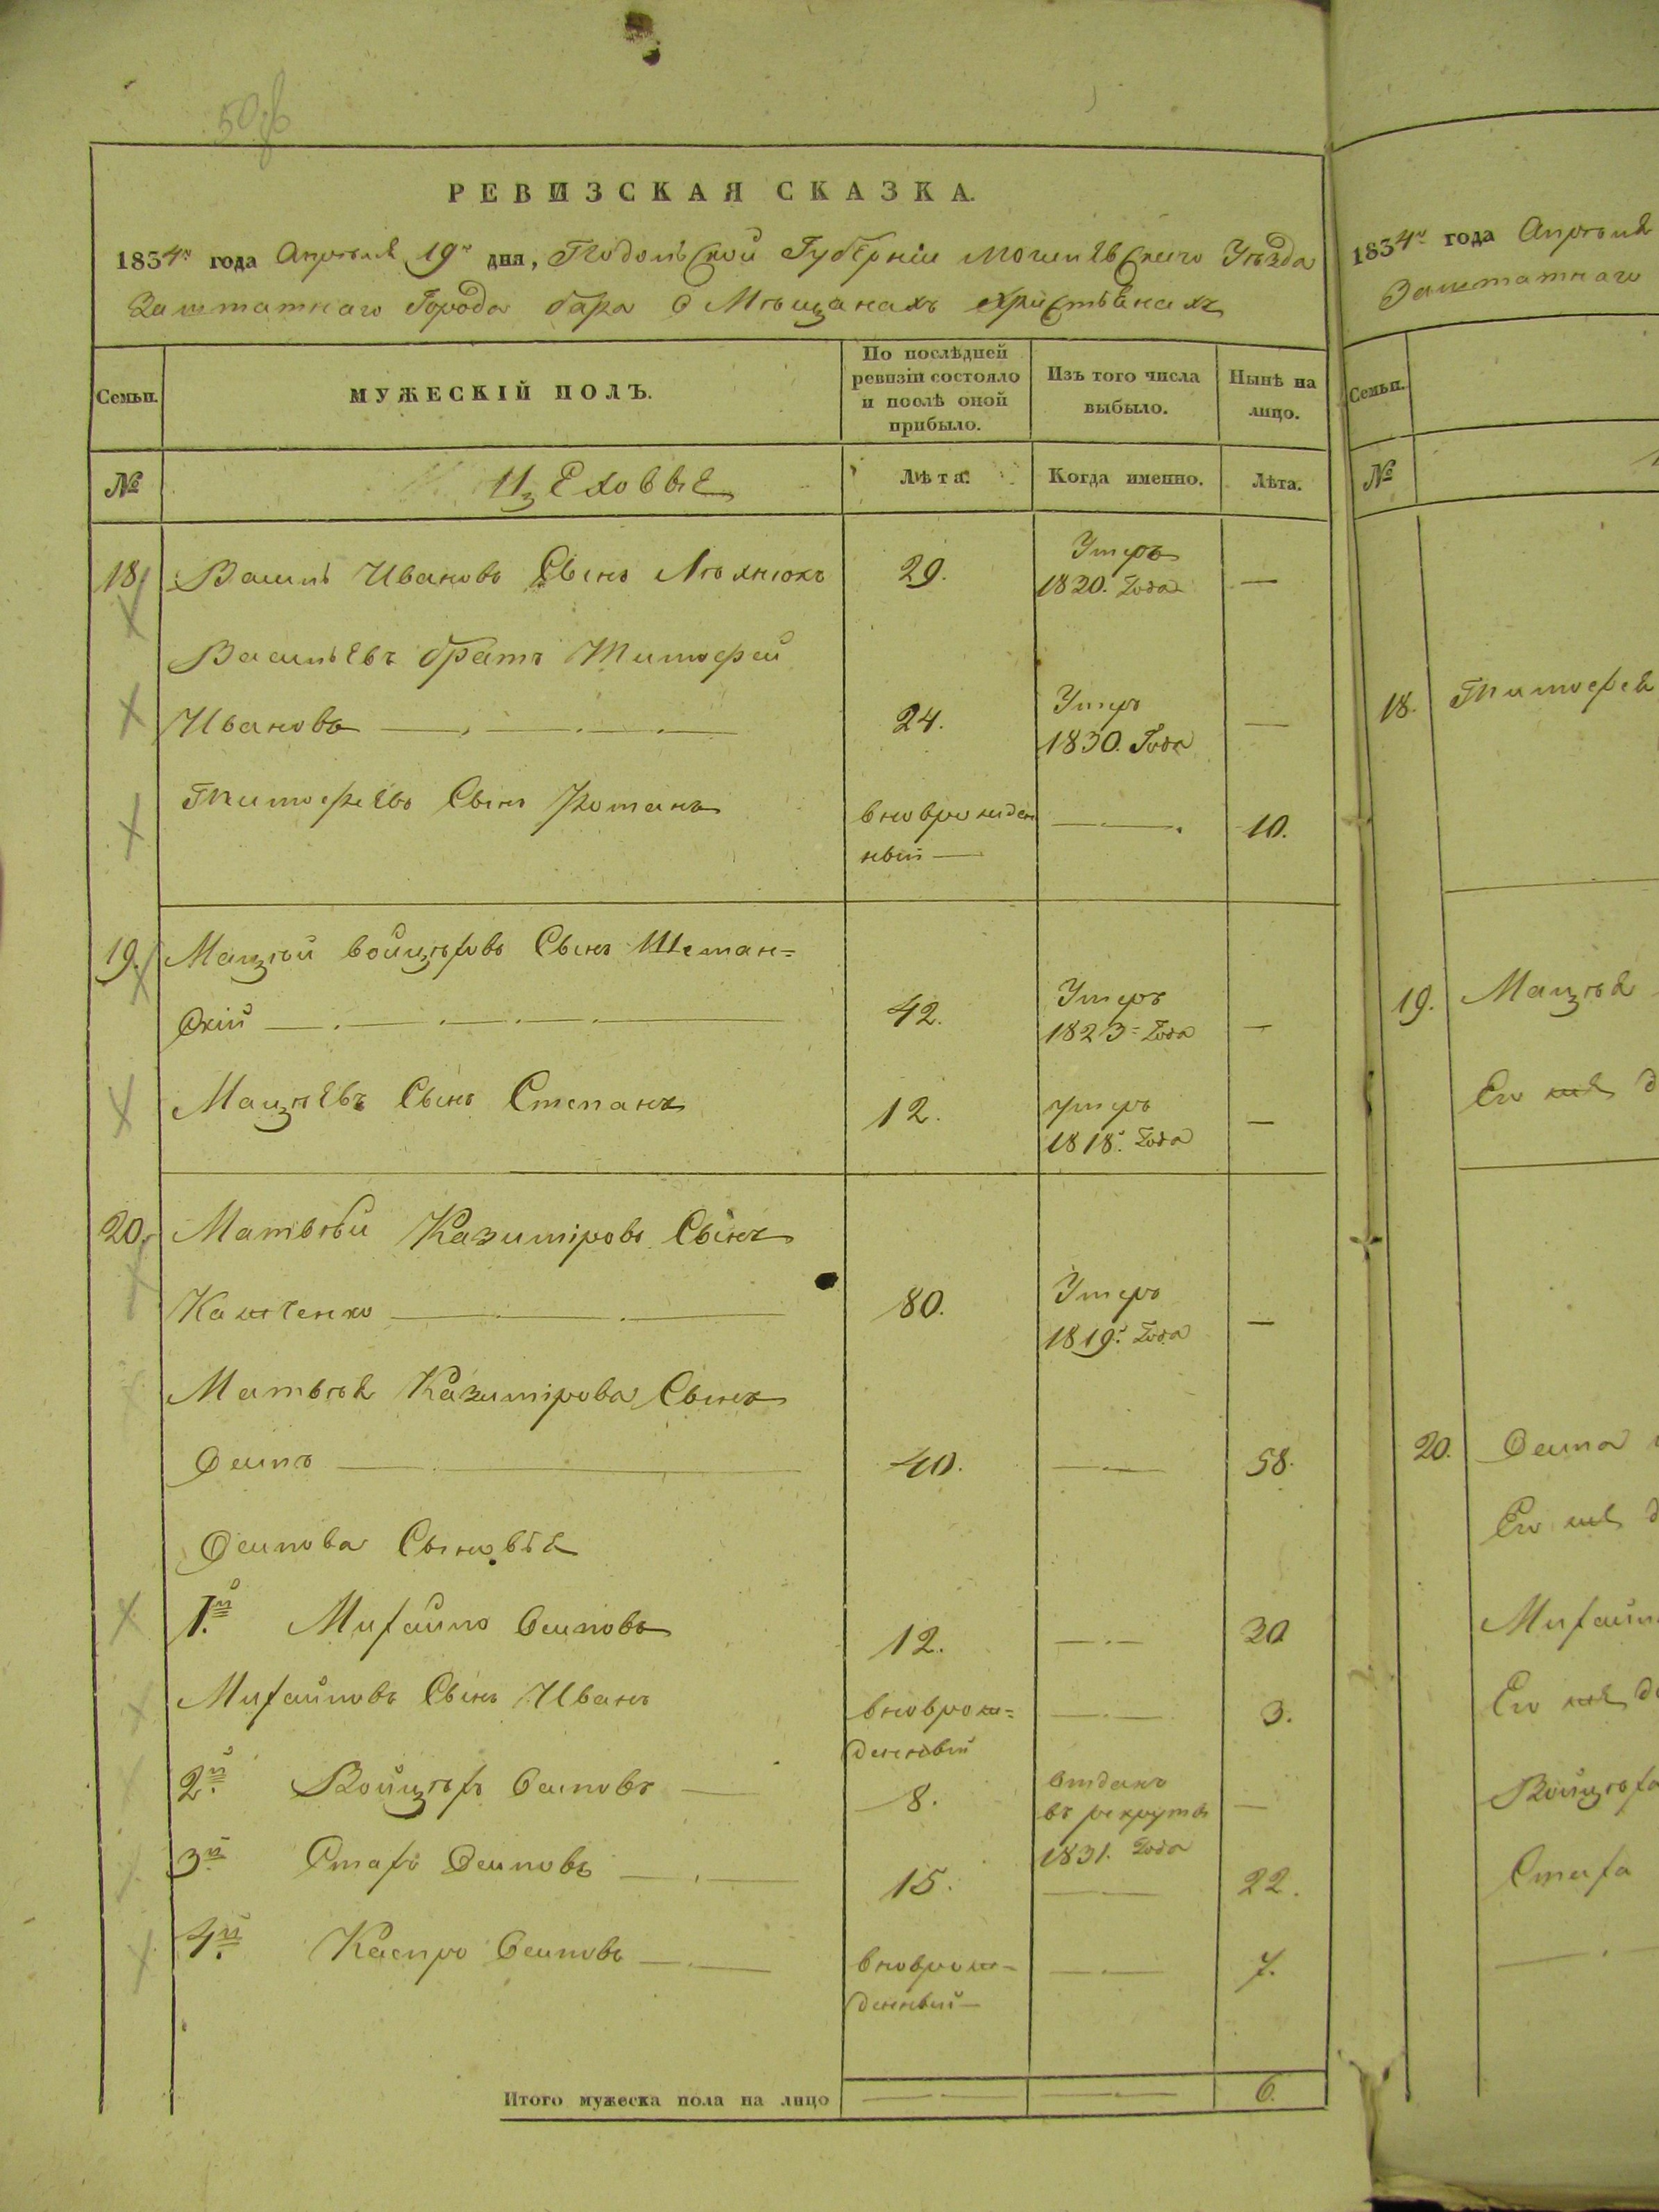 50
РЕВИЗСКАЯ СКАЗКА.
1834го года Апреля 19го дня, Подольской Губерніи Могилевскаго Уѣзда
Заштатнаго Города бара о Мѣщанахъ христьянахъ
Семьи.
МУЖЕСКІЙ ПОЛЪ.
По послѣдней
ревизіи состояло
и послѣ оной
прибыло.
Изъ того числа
выбыло.
Нынѣ на
лицо.
№
Цеховые
Лѣта.
Когда именно.
Лѣта.
18 Василь Ивановъ Сынъ 29. Умеръ
1820. Года —
Васильевъ братъ Тимофей
Ивановъ 24. Умеръ
1830. Года —
Тимофеевъ Сынъ Романъ вноврожден
ный — 10.
19. Мацѣй войцѣховъ Сынъ Шеман=
скій 42. Умеръ
1823 Года —
Мацѣевъ Сынъ Степанъ 12. умеръ
1818. Года —
20. Матвѣй Казимировъ Сынъ
80. Умеръ
1819. Года —
Матвѣя Казимирова Сынъ
Осипъ 40. 58.
Осипова Сыновья
1.й Михайло Осиповъ 12. 30
Михайловъ Сынъ Иванъ вноврож=
денный 3.
2.й Войцѣхъ Осиповъ 8. отданъ
въ рекруты
1831. Года —
3й Стахъ Осиповъ 15. 22.
4.й Каспро Осиповъ вноврож=
денный 7.
Итого мужеска пола на лицо 6.
1834го года Апреля
Заштатнаго
Семьи.
№
18. Тимофея
19. Мацѣя
Его же
20. Осипа
Его же
Михайл
Его же
Войцѣха
Стаха